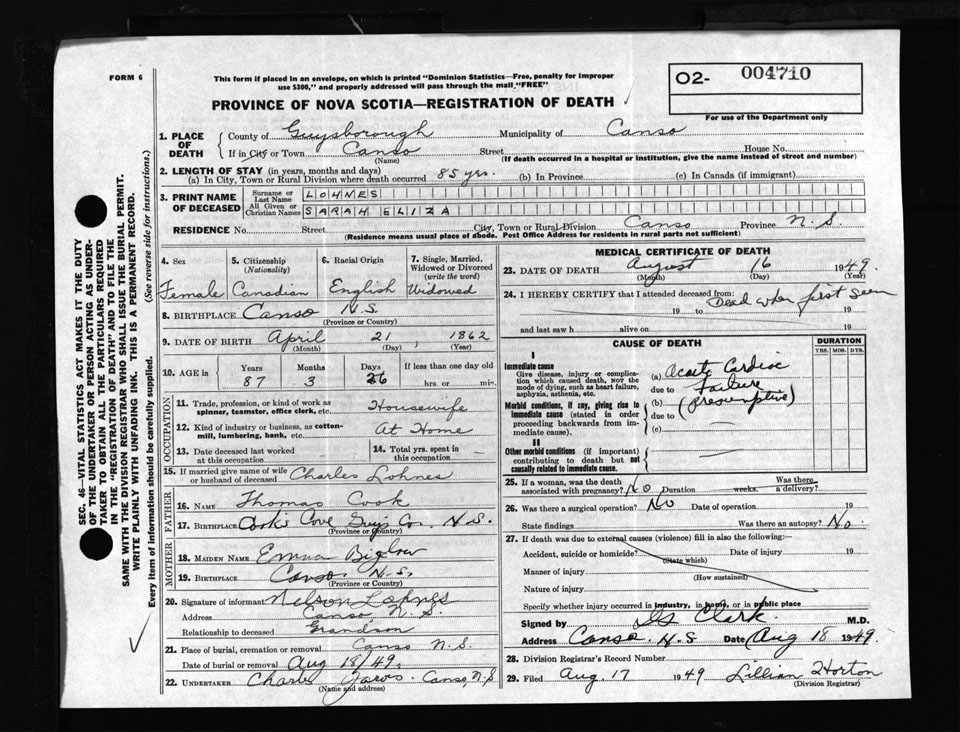 FORM 6
This form if placed in an envelope, on which is printed "Dominion Statistics—Free, penalty for improper
use $300," and properly addressed will pass through the mail "FREE"
O2- 004710
For use of the Department only
PROVINCE OF NOVA SCOTIA—REGISTRATION OF DEATH
SEC. 46—VITAL STATISTICS ACT MAKES IT THE DUTY
OF THE UNDERTAKER OR PERSON ACTING AS UNDER-
TAKER TO OBTAIN ALL THE PARTICULARS REQUIRED
IN THE "REGISTRATION OF DEATH" AND TO FILE THE
SAME WITH THE DIVISION REGISTRAR WHO SHALL ISSUE THE BURIAL PERMIT.
WRITE PLAINLY WITH UNFADING INK. THIS IS A PERMANENT RECORD.
Every item of information should be carefully supplied. (See reverse side for instructions.)
1. PLACE OF DEATH
County of Guysborough Municipality of Canso
If in City or Town Canso Street House No.
(Name) (If death occurred in a hospital or institution, give the name instead of street and number)
2. LENGTH OF STAY (in years, months and days)
(a) In City, Town or Rural Division where death occurred 85 yrs. (b) In Province (c) In Canada (if immigrant)
3. PRINT NAME OF DECEASED
Surname or Last Name LOHNES
All Given or Christian Names SARAH ELIZA
RESIDENCE No. Street City, Town or Rural Division Canso Province N.S
(Residence means usual place of abode. Post Office Address for residents in rural parts not sufficient)
4. Sex 5. Citizenship (Nationality) 6. Racial Origin 7. Single, Married, Widowed or Divorced (write the word)
Female Canadian English Widowed
8. BIRTHPLACE Canso N.S.
(Province or Country)
9. DATE OF BIRTH April 21, 1862
(Month) (Day) (Year)
10. AGE in Years Months Days If less than one day old
87 3 26 hrs. or min.
OCCUPATION
11. Trade, profession, or kind of work as spinner, teamster, office clerk, etc. Housewife
12. Kind of industry or business, as cotton-mill, lumbering, bank, etc. At Home
13. Date deceased last worked at this occupation 14. Total yrs. spent in this occupation
15. If married give name of wife or husband of deceased Charles Lohnes
FATHER
16. NAME Thomas Cook
17. BIRTHPLACE Cook's Cove Guys Co. N.S.
(Province or Country)
MOTHER
18. MAIDEN NAME Emma Biglow
19. BIRTHPLACE Canso N.S.
(Province or Country)
20. Signature of informant Nelson Lohnes
Address Canso N.S.
Relationship to deceased Grandson
21. Place of burial, cremation or removal Canso N.S.
Date of burial or removal Aug 18/49,
22. UNDERTAKER Charles Canso, N.S
(Name and address)
MEDICAL CERTIFICATE OF DEATH
23. DATE OF DEATH August 16 1949.
(Month) (Day) (Year)
24. I HEREBY CERTIFY that I attended deceased from: Dead when first seen
19 to 19
and last saw h alive on 19
CAUSE OF DEATH DURATION
YRS. MOS. DYS.
I
Immediate cause
Give disease, injury or complication which caused death, NOT the mode of dying, such as heart failure, asphyxia, asthenia, etc.
(a) Acute Cardiac
due to Failure
Morbid conditions, if any, giving rise to immediate cause (stated in order proceeding backwards from immediate cause).
(b) (presumptive)
due to
(c)
II
Other morbid conditions (if important) contributing to death but not causally related to immediate cause.
25. If a woman, was the death associated with pregnancy? No Duration weeks. Was there a delivery?
26. Was there a surgical operation? No Date of operation 19
State findings Was there an autopsy? No.
27. If death was due to external causes (violence) fill in also the following:—
Accident, suicide or homicide? Date of injury 19
(State which)
Manner of injury
(How sustained)
Nature of injury
Specify whether injury occurred in industry, in home, or in public place
Signed by Clark. M.D.
Address Canso. N.S. Date Aug 18 1949.
28. Division Registrar's Record Number
29. Filed Aug. 17 1949 Lillian Horton
(Division Registrar)